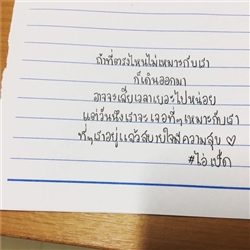 ถ้าที่ตรงไหนไม่เหมาะกับเรา
ก็เดินออกมา
อาจจะเสียเวลาเยอะไปหน่อย
แต่วันนึงเราจะเจอที่ๆเหมาะกับเรา
ที่ๆเราอยู่แล้วสบายใจมีความสุข ♡
#ไอ่เปี๊ด